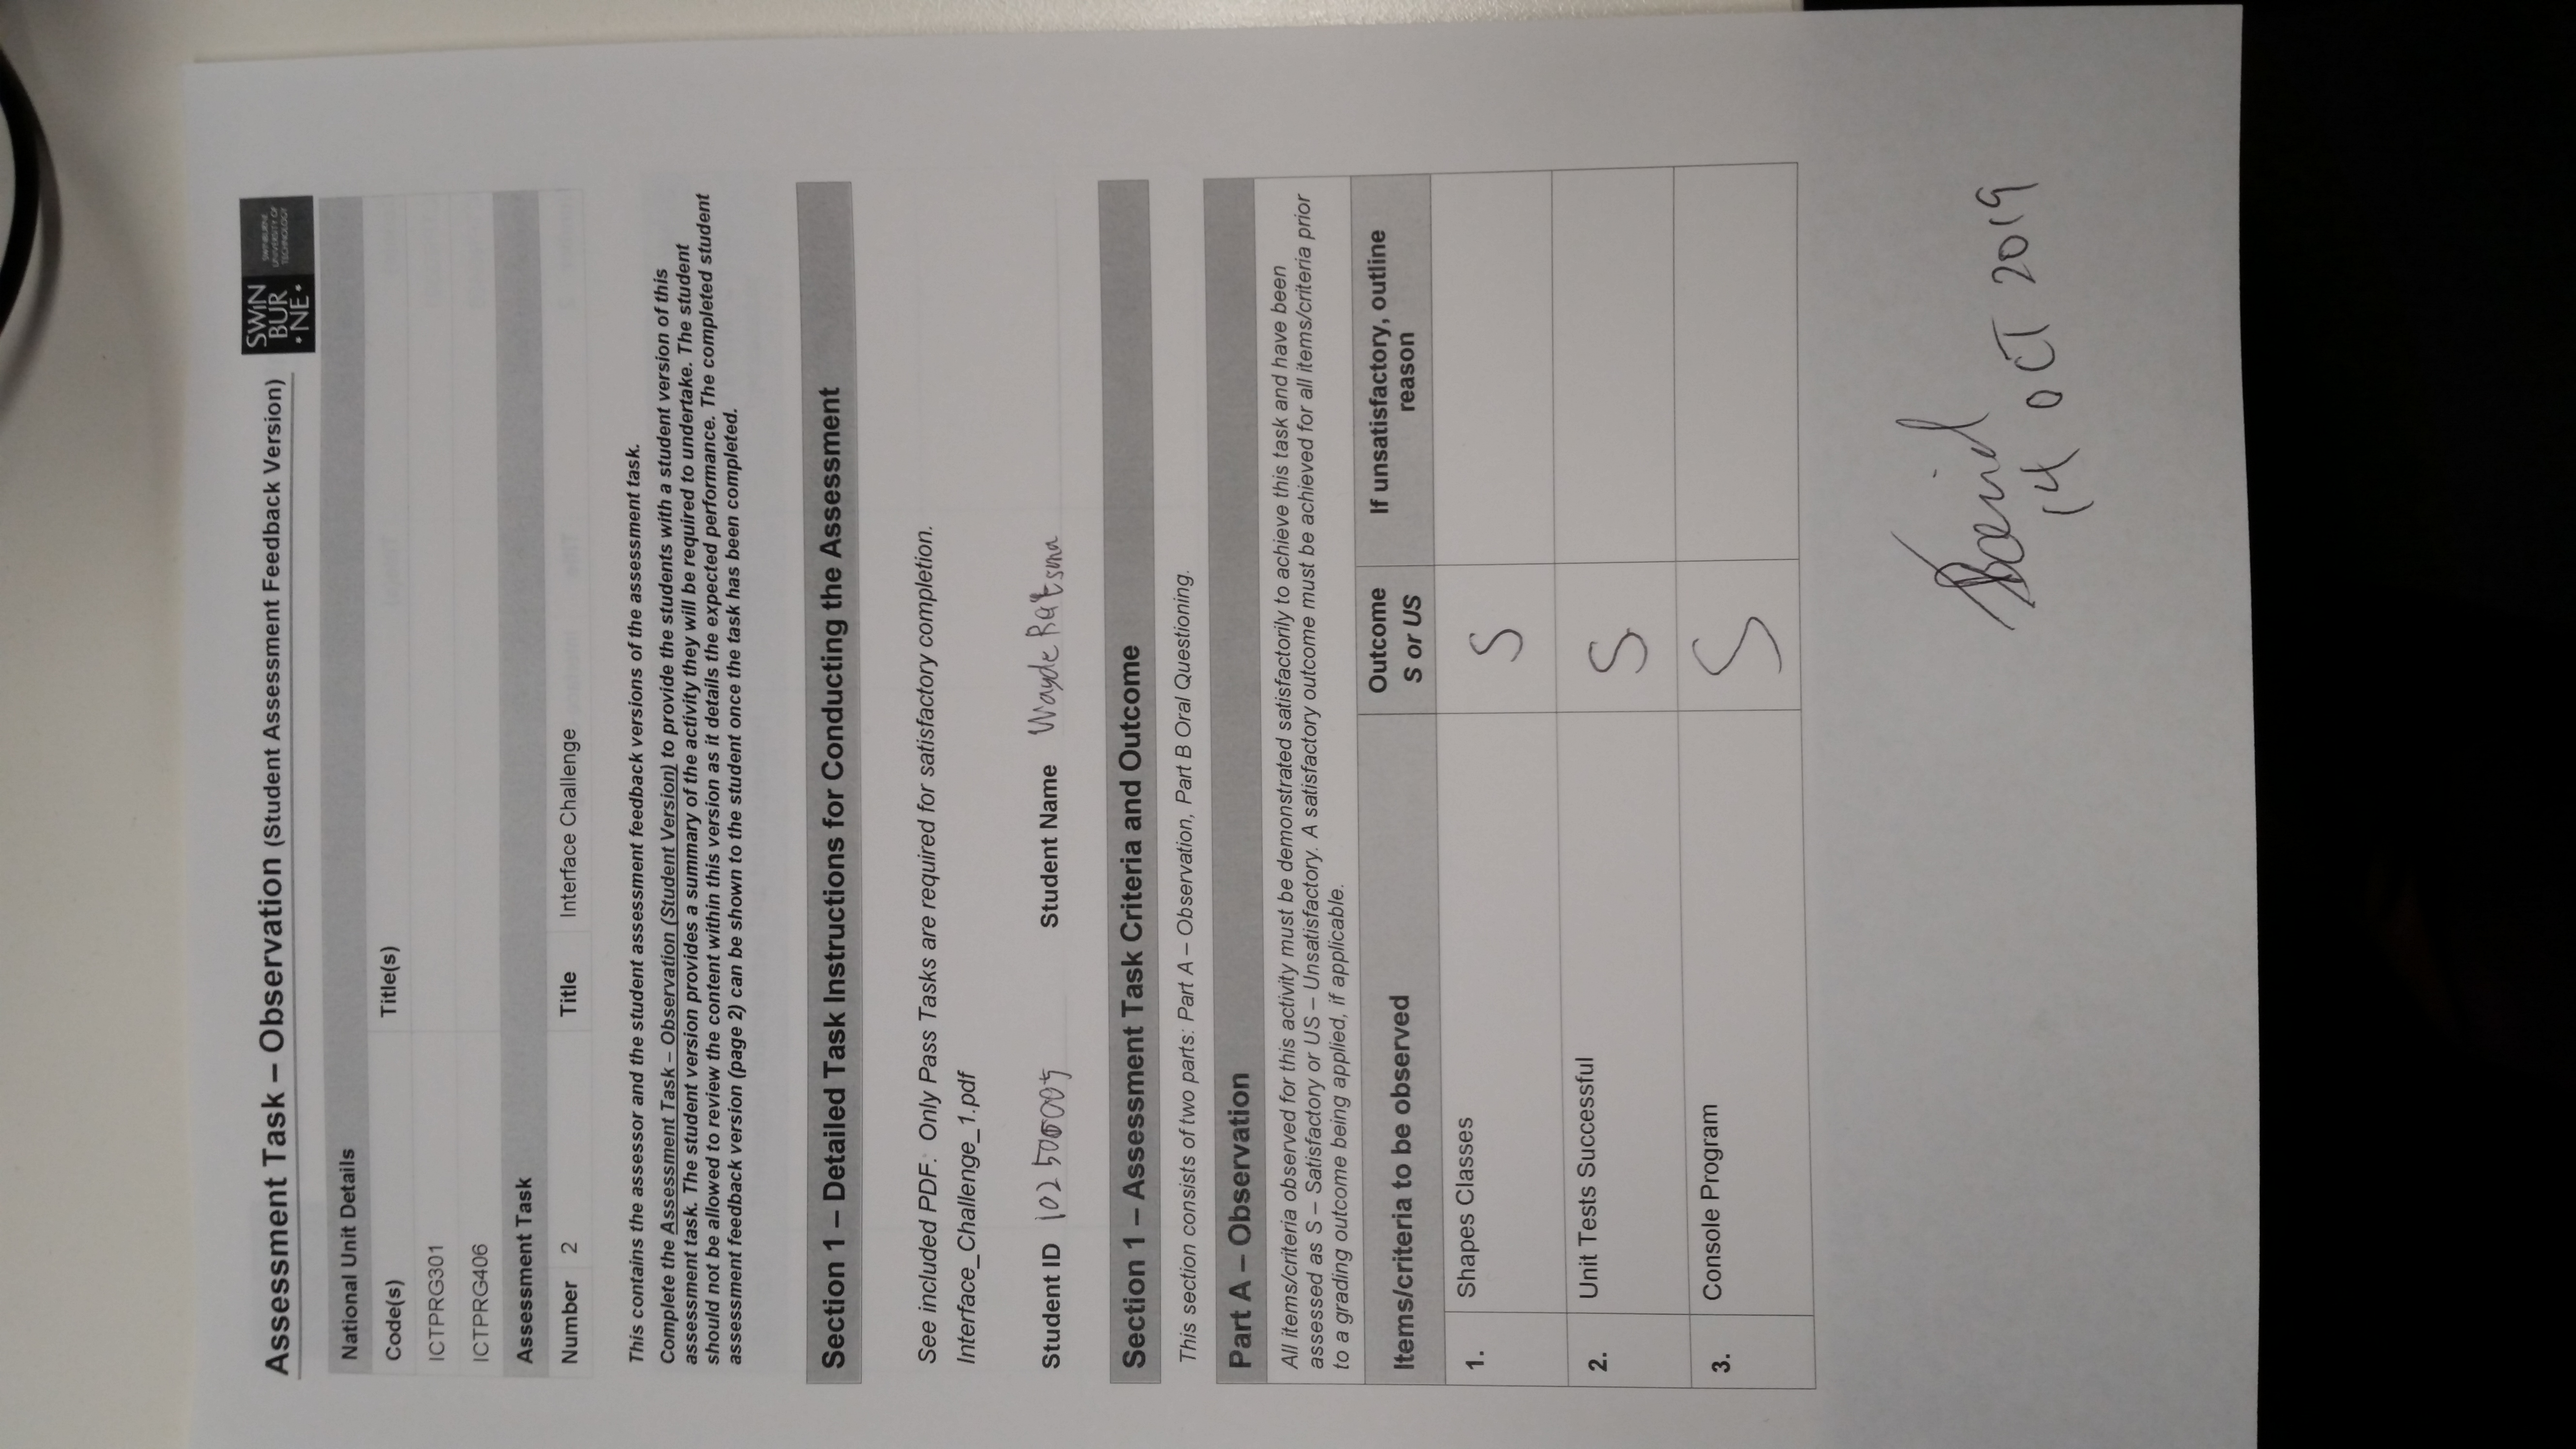 Assessment Task – Observation (Student Assessment Feedback Version)
SWIN
BUR
•NE•
SWINBURNE
UNIVERSITY OF
TECHNOLOGY
National Unit Details
Code(s) Title(s)
ICTPRG301
ICTPRG406
Assessment Task
Number 2 Title Interface Challenge
This contains the assessor and the student assessment feedback versions of the assessment task.
Complete the Assessment Task – Observation (Student Version) to provide the students with a student version of this
assessment task. The student version provides a summary of the activity they will be required to undertake. The student
should not be allowed to review the content within this version as it details the expected performance. The completed student
assessment feedback version (page 2) can be shown to the student once the task has been completed.
Section 1 – Detailed Task Instructions for Conducting the Assessment
See included PDF. Only Pass Tasks are required for satisfactory completion.
Interface_Challenge_1.pdf
Student ID 102500005 Student Name Wayde
Section 1 – Assessment Task Criteria and Outcome
This section consists of two parts: Part A – Observation, Part B Oral Questioning.
Part A – Observation
All items/criteria observed for this activity must be demonstrated satisfactorily to achieve this task and have been
assessed as S – Satisfactory or US – Unsatisfactory. A satisfactory outcome must be achieved for all items/criteria prior
to a grading outcome being applied, if applicable.
Items/criteria to be observed Outcome S or US If unsatisfactory, outline reason
1. Shapes Classes S
2. Unit Tests Successful S
3. Console Program S
David
14 OCT 2019